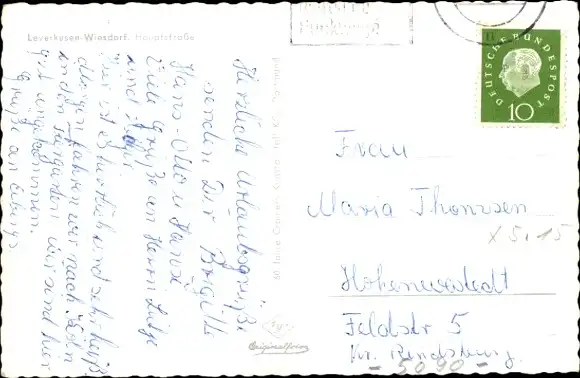 Leverkusen-Wiesdorf, Hauptstraße
Herzliche Urlaubsgrüße
senden Dir Brigitte
Hans-Otto u Hansi
Viele Grüße an Herrn Lütge
und
Hier ist es herrlich und sehr heiß
Morgen fahren wir nach Köln
in den Tiergarten Wir sind hier
gut angekommen.
Grüße an
DEUTSCHE BUNDESPOST
10
Frau
Maria Thomsen
X 5.15
Hohenwestedt
Feldstr 5
Kr. Rendsburg
- 5090 -
Originalfoto